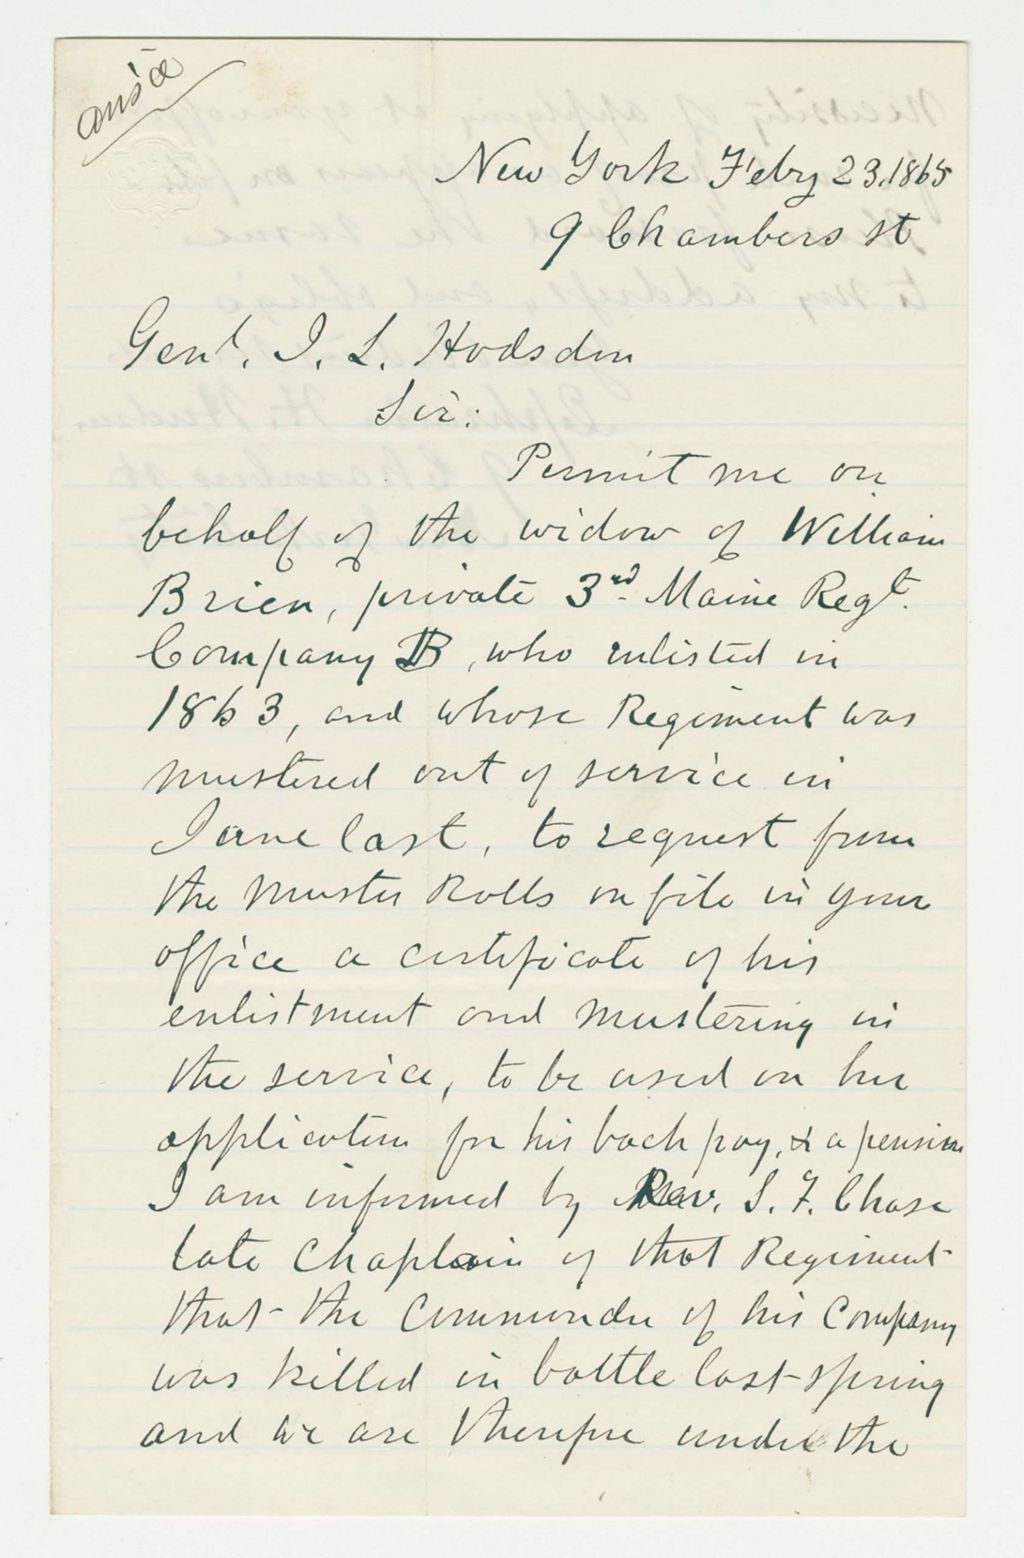 ans'd
New York Feby 23. 1865
9 Chambers st
Genl. J. L. Hodsdon
Sir:
Permit me on
behalf of the widow of William
Brien, private 3rd. Maine Regt.
Company B, who enlisted in
1863, and whose Regiment was
mustered out of service in
June last, to request from
the Muster Rolls on file in your
office a certificate of his
enlistment and mustering in
the service, to be used on her
application for his back pay, & a pension
I am informed by Rev. S. F. Chase
late Chaplain of that Regiment
that the Commander of his Company
was killed in battle last spring
and we are therefore under the